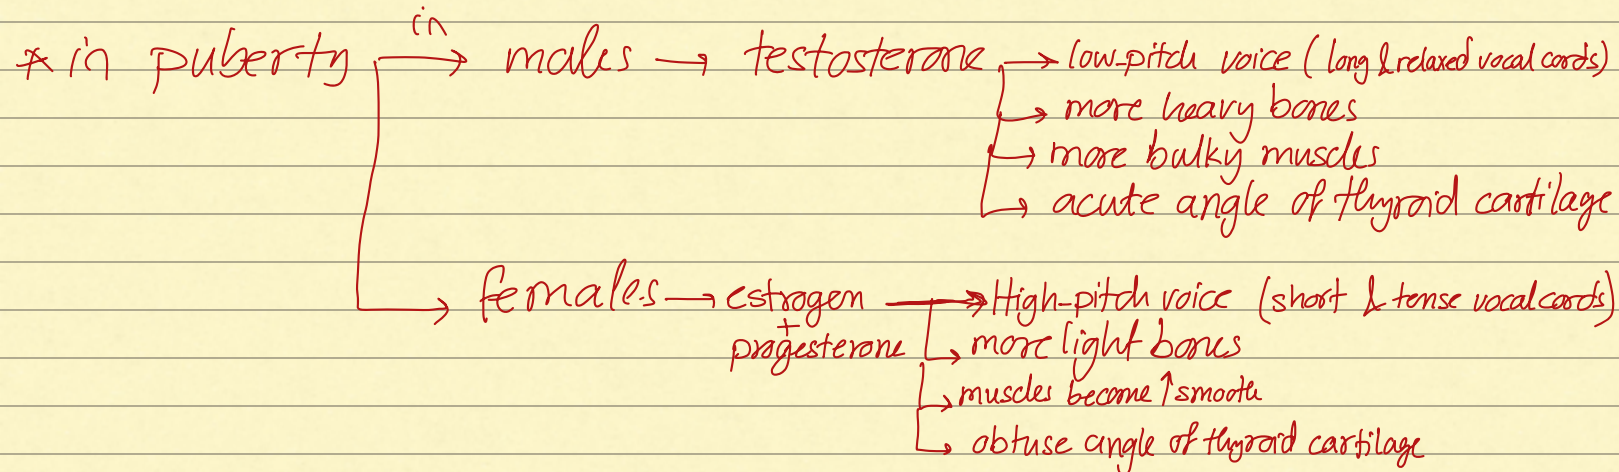 * in puberty in → males → testosterone → low-pitch voice (long & relaxed vocal cords)
→ more heavy bones
→ more bulky muscles
→ acute angle of thyroid cartilage
→ females → estrogen + progesterone → High-pitch voice (short & tense vocal cords)
→ more light bones
→ muscles become ↑ smooth
→ obtuse angle of thyroid cartilage